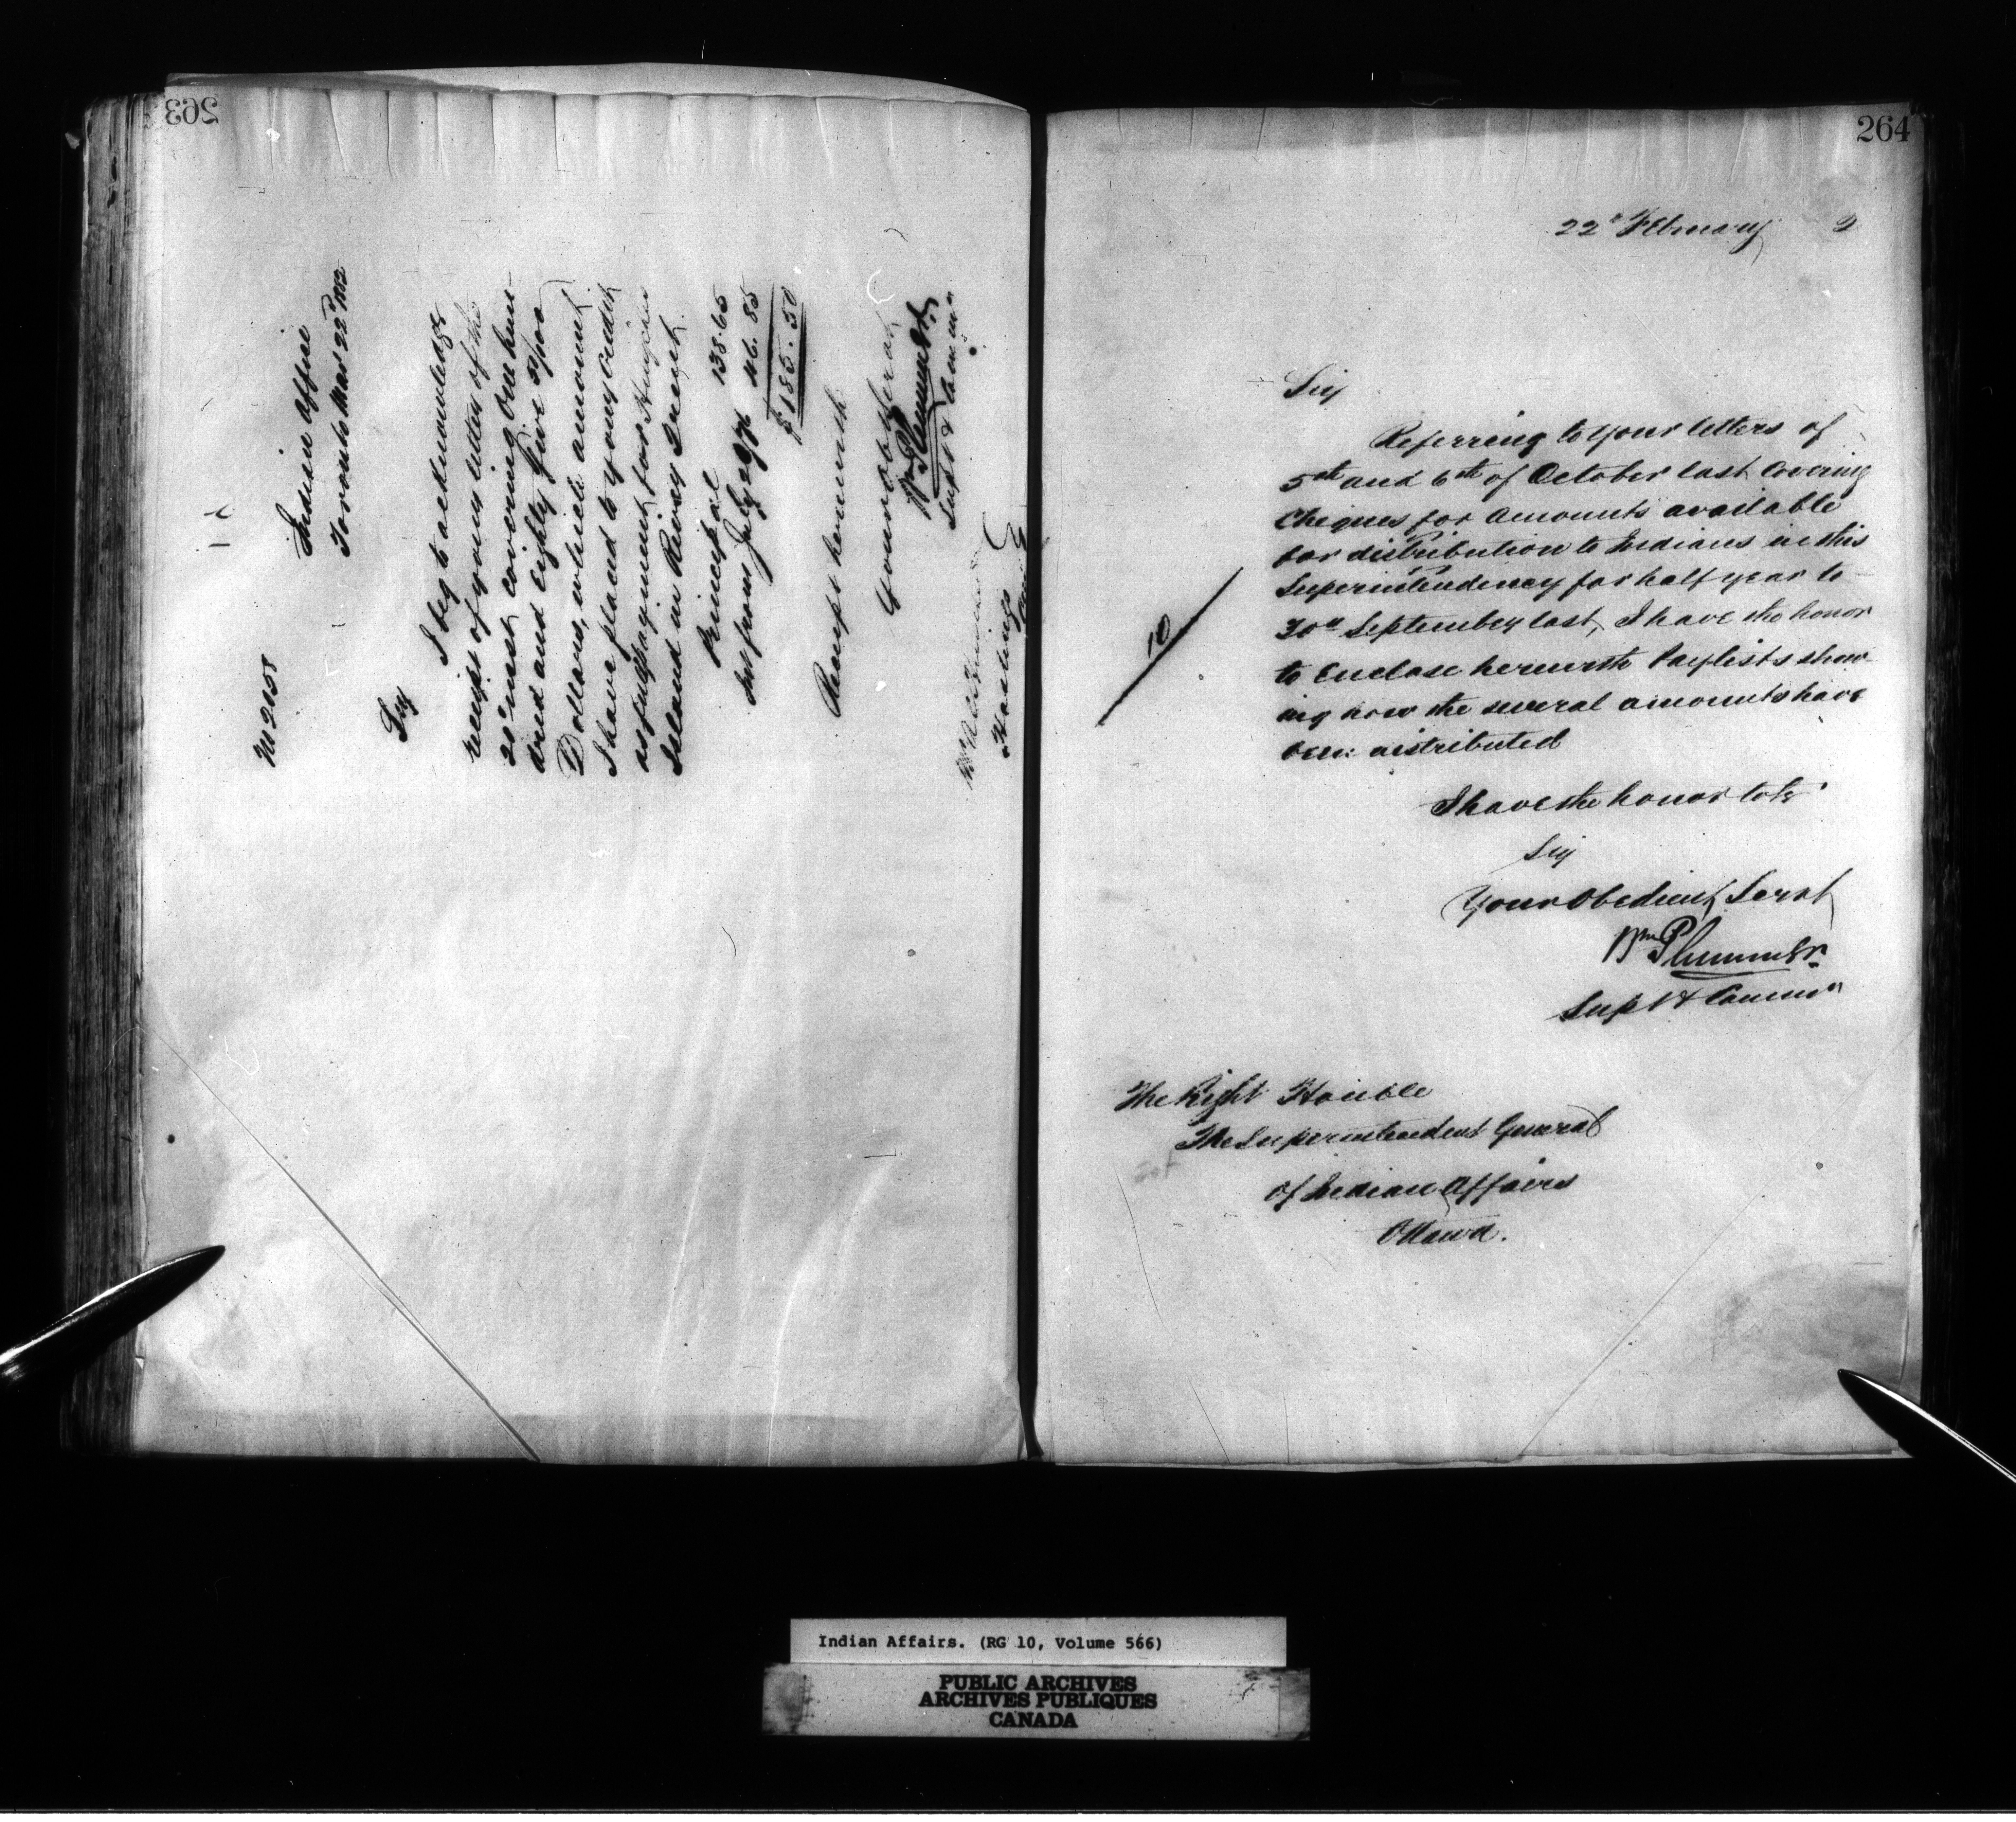 263
M 2055
Indian Office
Toronto Mar 22d 1882
Sir
I beg to acknowledge
receipt of your letter of the
20th inst covering One hun-
dred and Eighty five 50/100
Dollars, which amount
I have placed to your credit
as full payment for
Island in River Trent.
Principal 138.65
Int from July 2 1876 46.85
$185.50
Receipt herewith
Your ob Servt
Wm Plummer
Supt & Commr
Hastings
264
22d February 2
Sir
Referring to your letters of
5th and 6th of October last Covering
Cheques for Amounts available
for distribution to Indians in this
Superintendency for half year to
30th September last, I have the honor
to Enclose herewith Paylists show-
ing how the several amounts have
been distributed
I have the honor to be
Sir
Your Obedient Servt
Wm Plummer
Supt & Commr
10
The Right Honble
The Superintendent General
of Indian Affairs
Ottawa.
Indian Affairs. (RG 10, Volume 566)
PUBLIC ARCHIVES
ARCHIVES PUBLIQUES
CANADA